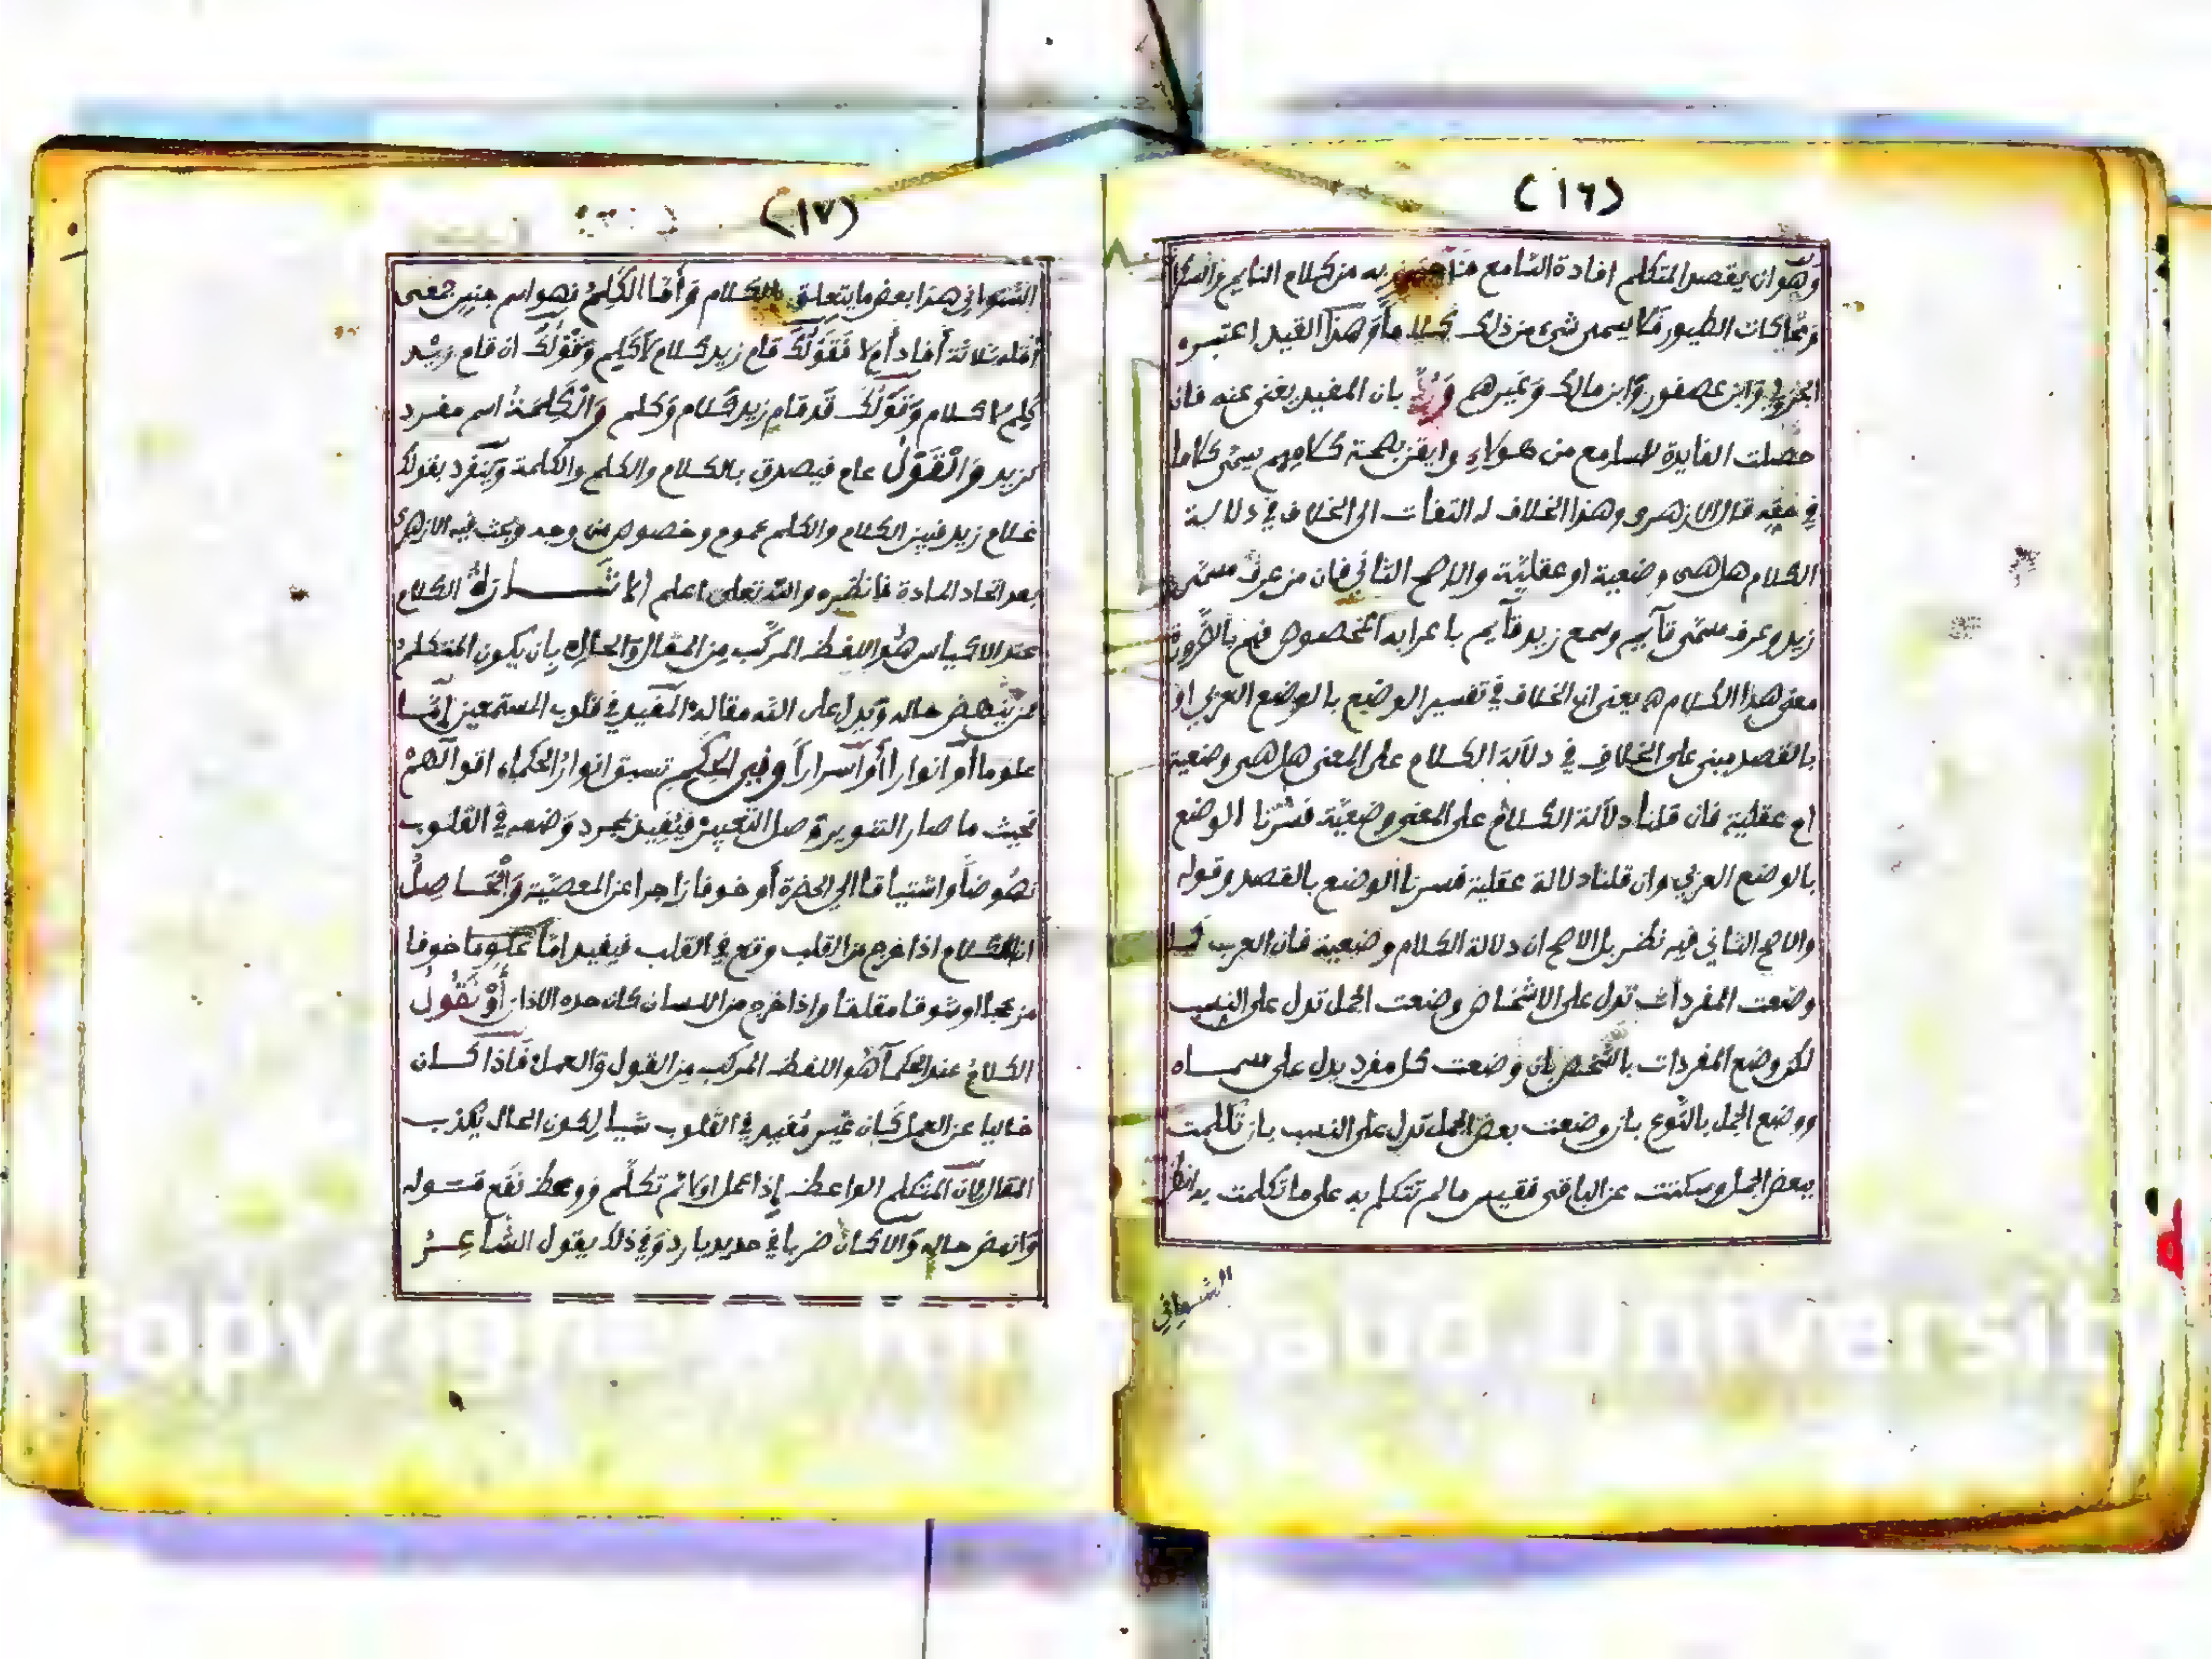 (١٦)
وهو ان يقصد المتكلم افادة السامع من كلام النايم والسكرا
ومحاكات الطيور فلا يسمى شيء من ذلك كلاما وهذا القيد اعتبره
الجزولي وابن عصفور وابن مالك وغيرهم ورد بان المفيد يغني عنه فان
حصلت الفايدة للسامع من هولاء وايقن بصحة كلامهم يسمى كلاما
في حقه قال الازهرى وهذا الخلاف له التفات الى الخلاف في دلالة
الكلام هل هى وضعية او عقلية والاصح الثاني فان من عرف مسمى
زيد وعرف مسمى قآيم وسمع زيد قآيم باعرابه المخصوص فهم بالضرورة
معنى هذا الكلام ه يعنى ان الخلاف في تفسير الوضع بالوضع العربي او
بالقصد مبني على الخلاف في دلالة الكلام على المعنى هل هى وضعية
ام عقلية فان قلنا دلالة الكلام على المعنى وضعية فسرنا الوضع
بالوضع العربي وان قلنا دلالة عقلية فسرنا الوضع بالقصد وقوله
والاصح الثاني فيه نظر بل الاصح ان دلالة الكلام وضعية فان العرب كما
وضعت المفردات تدل على الاشخاص وضعت الجمل تدل على النسب
لكن وضع المفردات بالشخص بان وضعت كل مفرد يدل على مسماه
ووضع الجمل بالنوع بان وضعت بعض الجمل تدل على النسب بان تكلمت
ببعض الجمل وسكتت عن الباقى فقيس ما لم تتكلم به على ما تكلمت به انظر
الشنواني
(١٧)
الشنواني هذا بعض ما يتعلق بالكلام وأما الكلم فهو اسم جنس جمعى
أقله ثلاثة أفاد أم لا فقولك قام زيد كلام لا كلم وقولك ان قام زيد
كلم لا كلام وقولك قد قام زيد كلام وكلم والكلمة اسم مفرد
كزيد والقول عام فيصدق بالكلام والكلم والكلمة وينفرد بقولك
غلام زيد فبين الكلام والكلم عموم وخصوص من وجه وبحث فيه الازهرى
بعد اتحاد المادة فانظره والله تعلى اعلم الاشارة الكلام
عند الاكياس هو اللفظ المركب من المقال والحال بان يكون المتكلم
من ينهض حاله ويدل على الله مقاله المفيد في قلوب المستمعين إما
علوما أو انوارا أو اسرارا وفي الحكم تسبق انوار الحكماء اقوالهم
فحيث ما صار التنوير وصل التعبير فيفيد بمجرد وضعه في القلوب
نهوضا واشتياقا الى الحضرة أو خوفا زاجرا عن المعصية والحاصل
ان الكلام اذا خرج من القلب وقع في القلب فيفيد اما علوما خوفا
مزعجا او شوقا مقلقا واذا خرج من اللسان كان حده الاذان أو نقول
الكلام عند الحكمآ هو اللفظ المركب من القول والعمل فاذا كان
خاليا عن العمل كان غير مفيد في القلوب شيا لكون الحال يكذب
المقال لان المتكلم الواعظ إذا عمل اولا ثم تكلم ووعظ نفع قوله
وانهض حاله والا كان ضربا في حديد بارد وفي ذلك يقول الشاعر